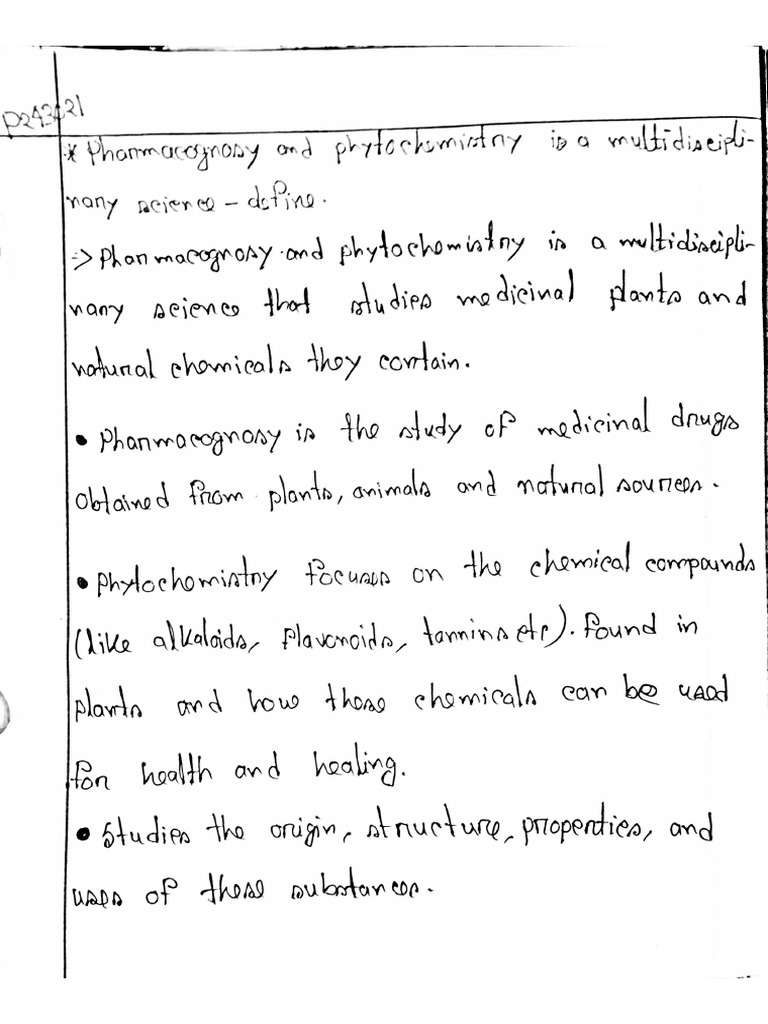 P243621
* Pharmacognosy and phytochemistry is a multidiscipli-
nary science - define.
=> Pharmacognosy and phytochemistry is a multidiscipli-
nary science that studies medicinal plants and
natural chemicals they contain.
• Pharmacognosy is the study of medicinal drugs
obtained from plants, animals and natural sources.
• Phytochemistry focuses on the chemical compounds
(like alkaloids, flavonoids, tannins etc). found in
plants and how these chemicals can be used
for health and healing.
• Studies the origin, structure, properties, and
uses of these substances.